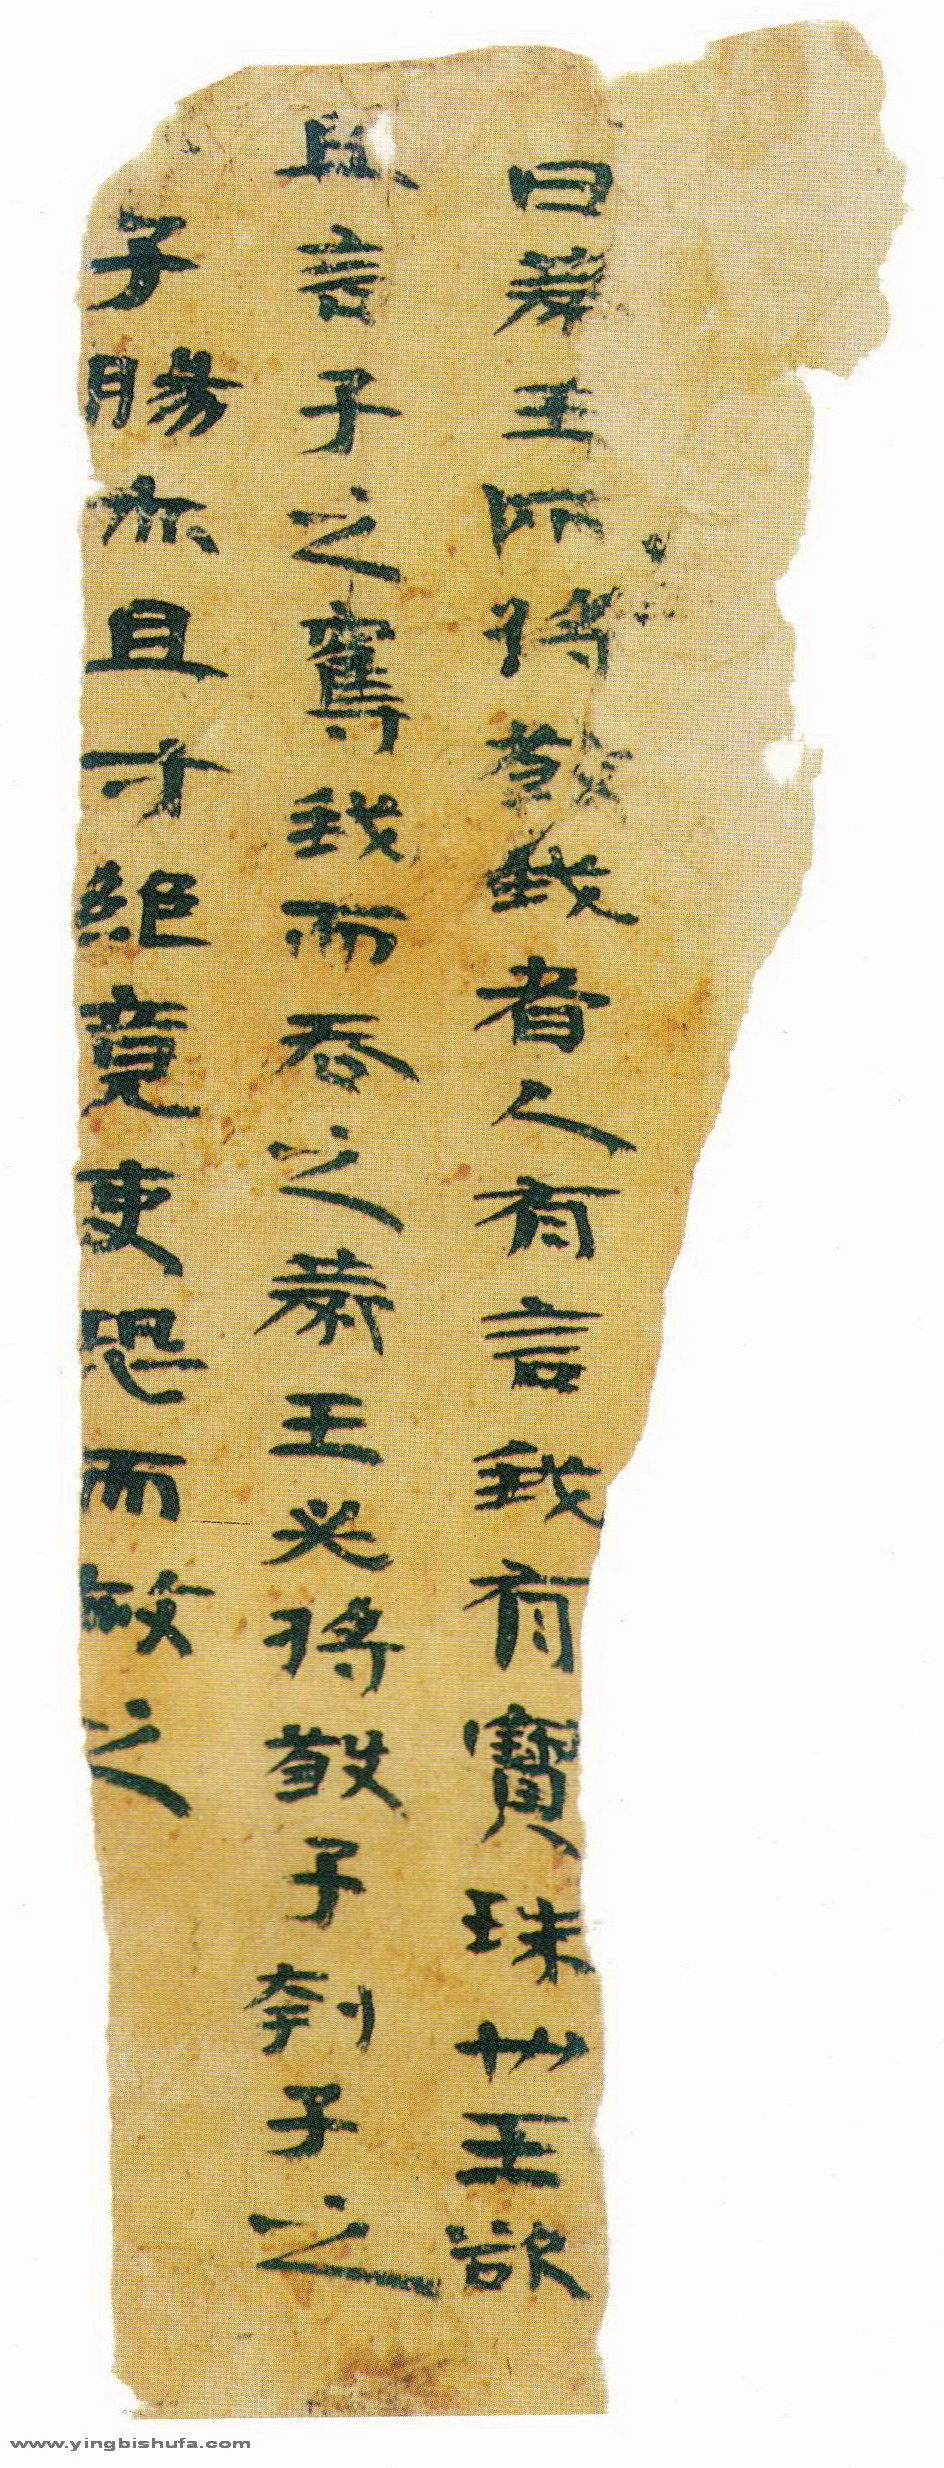 曰燕王所將殺我者人有言我有寶珠也王欲
且言子之奪我而吞之燕王必將殺子刳子
之
子腸亦且寸絕竟吏恐而赦之
www.yingbishufa.com